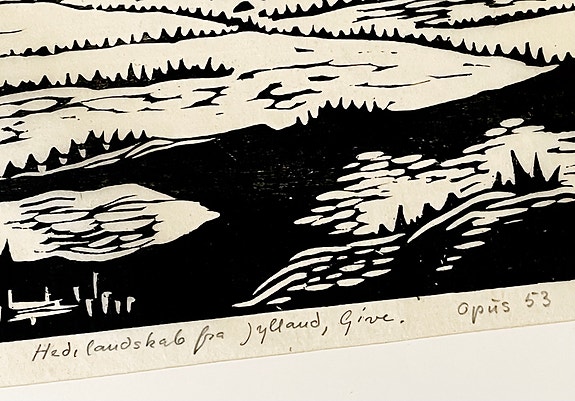 Hedelandskab fra Jylland, Give. opus 53